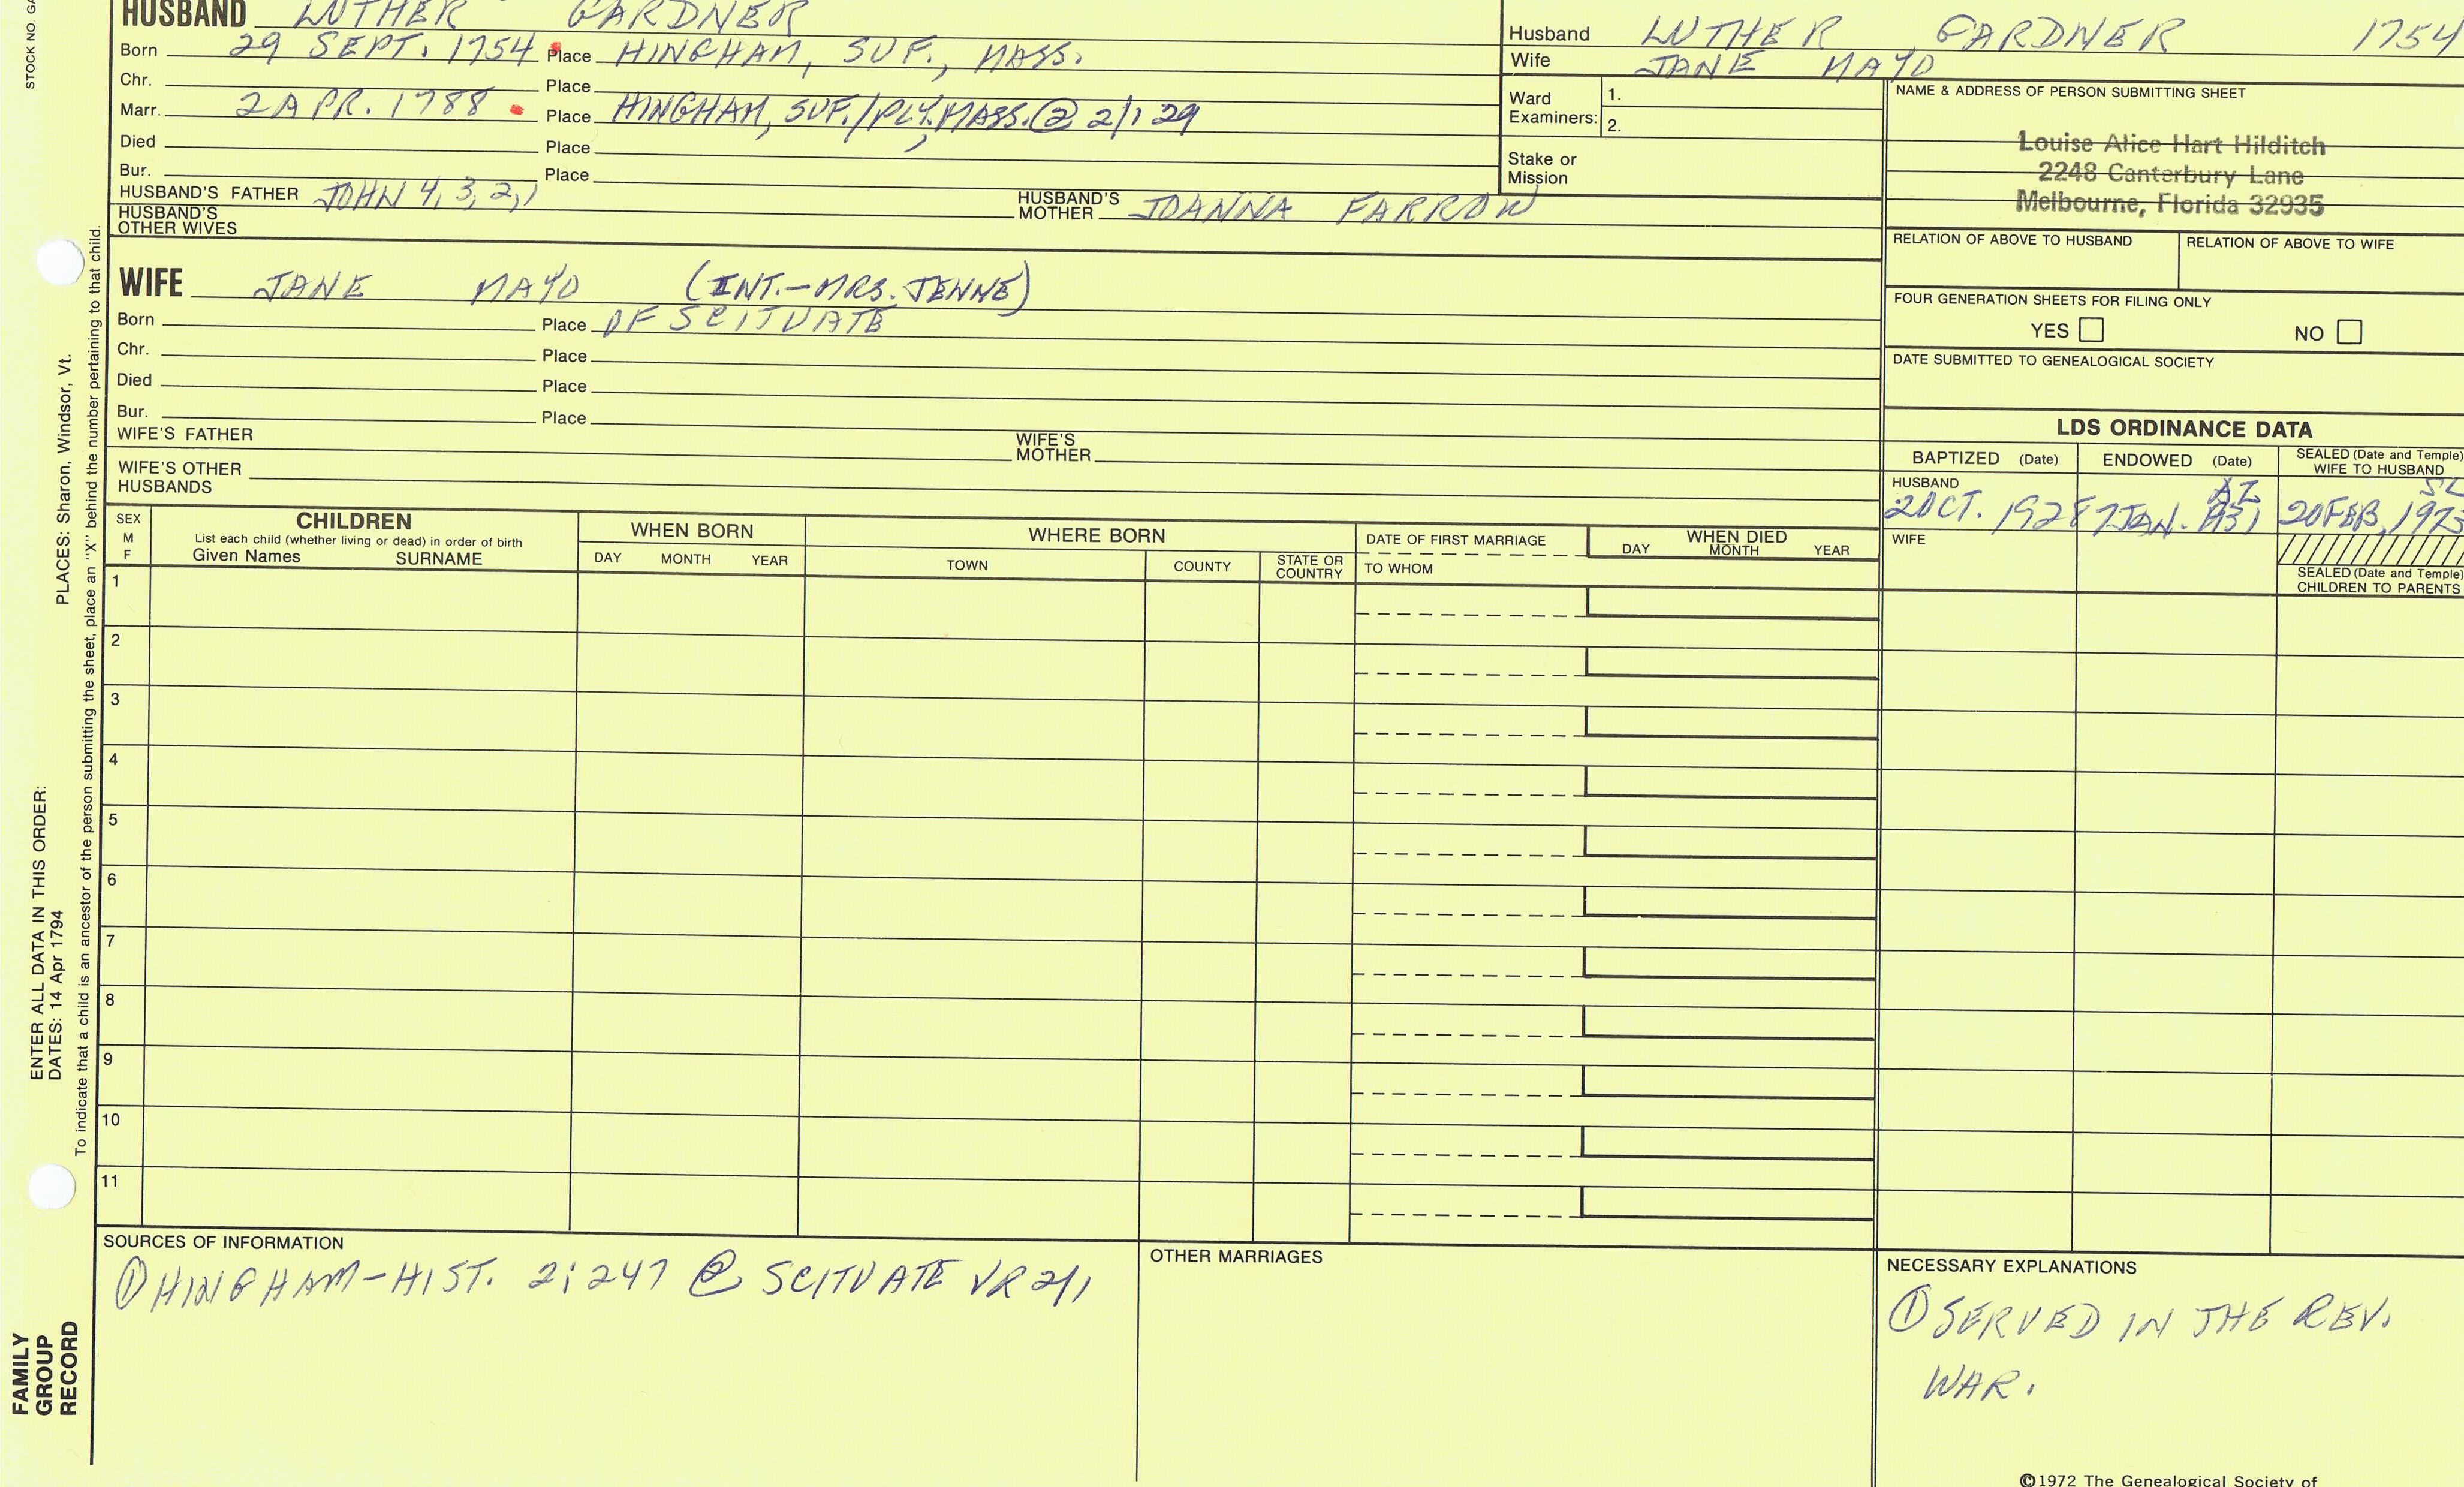 STOCK NO. GA
HUSBAND LUTHER GARDNER
Born 29 SEPT. 1754 Place HINGHAM, SUF., MASS.
Chr. Place
Marr. 2 APR. 1788 Place HINGHAM, SUF./PLY, MASS. @ 2/1 29
Died Place
Bur. Place
HUSBAND'S FATHER JOHN 4, 3, 2, 1 HUSBAND'S MOTHER JOANNA FARROW
HUSBAND'S OTHER WIVES
WIFE JANE MAYO (INT.-MRS. JENNE)
Born Place OF SCITUATE
Chr. Place
Died Place
Bur. Place
WIFE'S FATHER WIFE'S MOTHER
WIFE'S OTHER HUSBANDS
Husband LUTHER GARDNER 1754
Wife JANE MAYO
Ward Examiners: 1.
2.
Stake or Mission
NAME & ADDRESS OF PERSON SUBMITTING SHEET
Louise Alice Hart Hilditch
2248 Canterbury Lane
Melbourne, Florida 32935
RELATION OF ABOVE TO HUSBAND RELATION OF ABOVE TO WIFE
FOUR GENERATION SHEETS FOR FILING ONLY
YES NO
DATE SUBMITTED TO GENEALOGICAL SOCIETY
LDS ORDINANCE DATA
BAPTIZED (Date) ENDOWED (Date) SEALED (Date and Temple) WIFE TO HUSBAND
HUSBAND
AZ SL
2 OCT. 1928 7 JAN. 1931 20 FEB, 1973
WIFE
SEALED (Date and Temple)
CHILDREN TO PARENTS
SEX M F
CHILDREN
List each child (whether living or dead) in order of birth
Given Names SURNAME
WHEN BORN
DAY MONTH YEAR
WHERE BORN
TOWN COUNTY STATE OR COUNTRY
DATE OF FIRST MARRIAGE
TO WHOM
WHEN DIED
DAY MONTH YEAR
1
2
3
4
5
6
7
8
9
10
11
SOURCES OF INFORMATION
① HINGHAM-HIST. 2:247 @ SCITUATE VR 2/1
OTHER MARRIAGES
NECESSARY EXPLANATIONS
① SERVED IN THE REV.
WAR.
©1972 The Genealogical Society of
ENTER ALL DATA IN THIS ORDER:
DATES: 14 Apr 1794 PLACES: Sharon, Windsor, Vt.
To indicate that a child is an ancestor of the person submitting the sheet, place an "X" behind the number pertaining to that child.
FAMILY
GROUP
RECORD